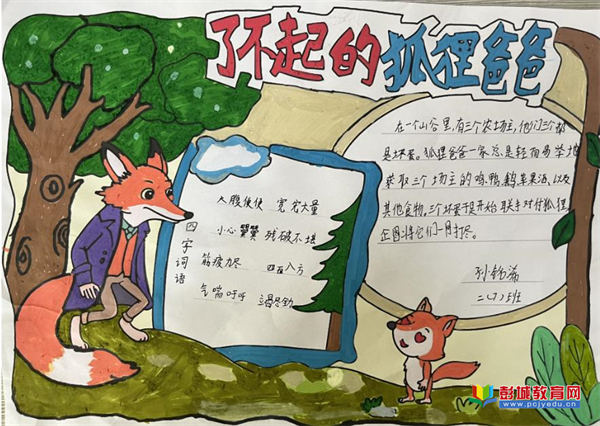 了不起的狐狸爸爸
四字词语
大腹便便 宽宏大量
小心翼翼 残破不堪
筋疲力尽 四面八方
气喘吁吁 竭尽全力
在一个山谷里,有三个农场主,他们三个都
是坏蛋。狐狸爸爸一家总是轻而易举地
获取三个场主的鸡、鸭、鹅、苹果酒,以及
其他食物,三个坏蛋于是开始联手对付狐狸,
企图将它们一网打尽。
孙铭浠
二(7)班
彭城教育网
www.pcjyedu.cn